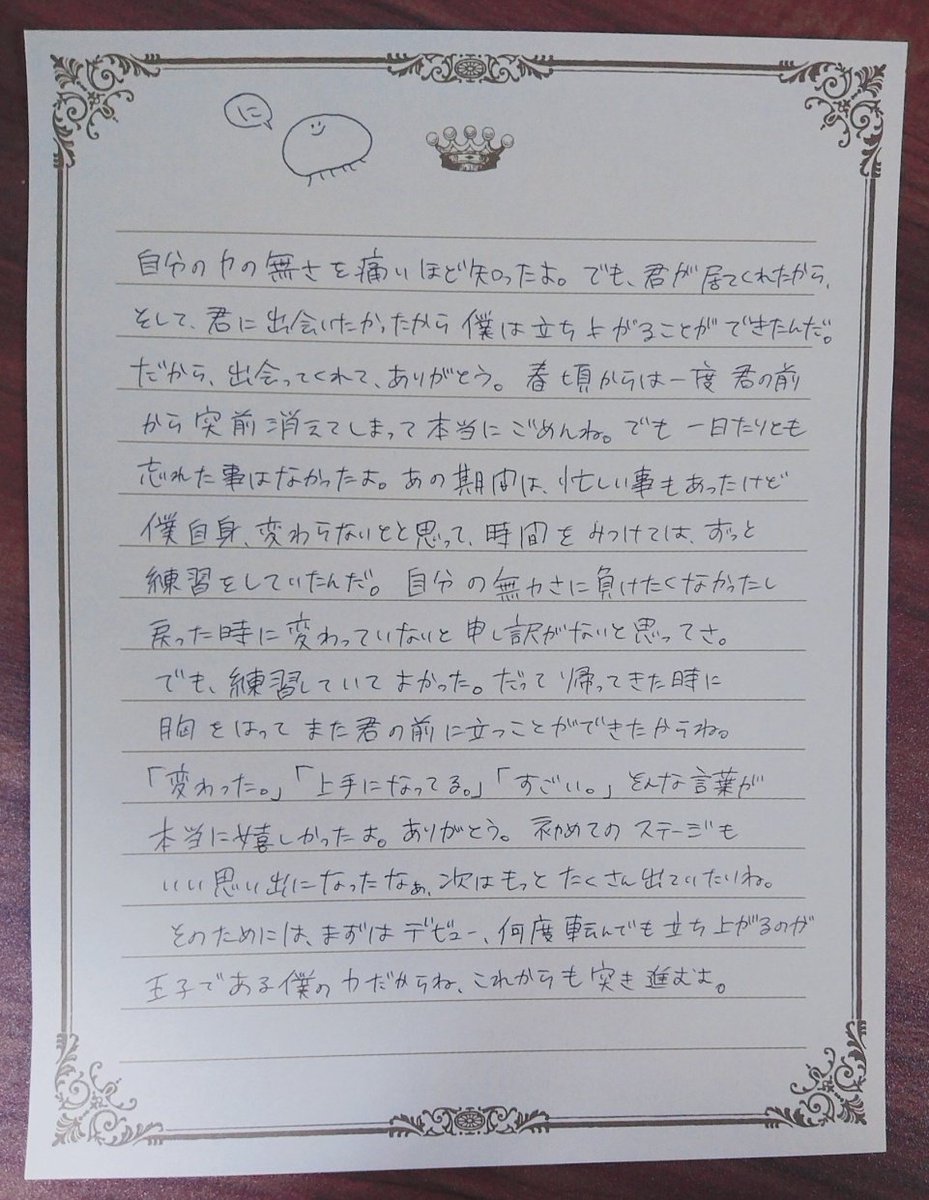 に
自分の力の無さを痛いほど知ったよ。でも、君が居てくれたから、
そして、君に出会いたかったから僕は立ち上がることができたんだ。
だから、出会ってくれて、ありがとう。春頃からは一度君の前
から突前消えてしまって本当にごめんね。でも一日たりとも
忘れた事はなかったよ。あの期間は、忙しい事もあったけど
僕自身、変わらないとと思って、時間をみつけては、ずっと
練習をしていたんだ。自分の無力さに負けたくなかったし
戻った時に変わっていないと申し訳がないと思ってさ。
でも、練習していてよかった。だって帰ってきた時に
胸をはってまた君の前に立つことができたからね。
「変わった。」「上手になってる。」「すごい。」そんな言葉が
本当に嬉しかったよ。ありがとう。初めてのステージも
いい思い出になったなぁ、次はもっとたくさん出ていたいね。
そのためには、まずはデビュー、何度転んでも立ち上がるのが
王子である僕の力だからね、これからも突き進むよ。